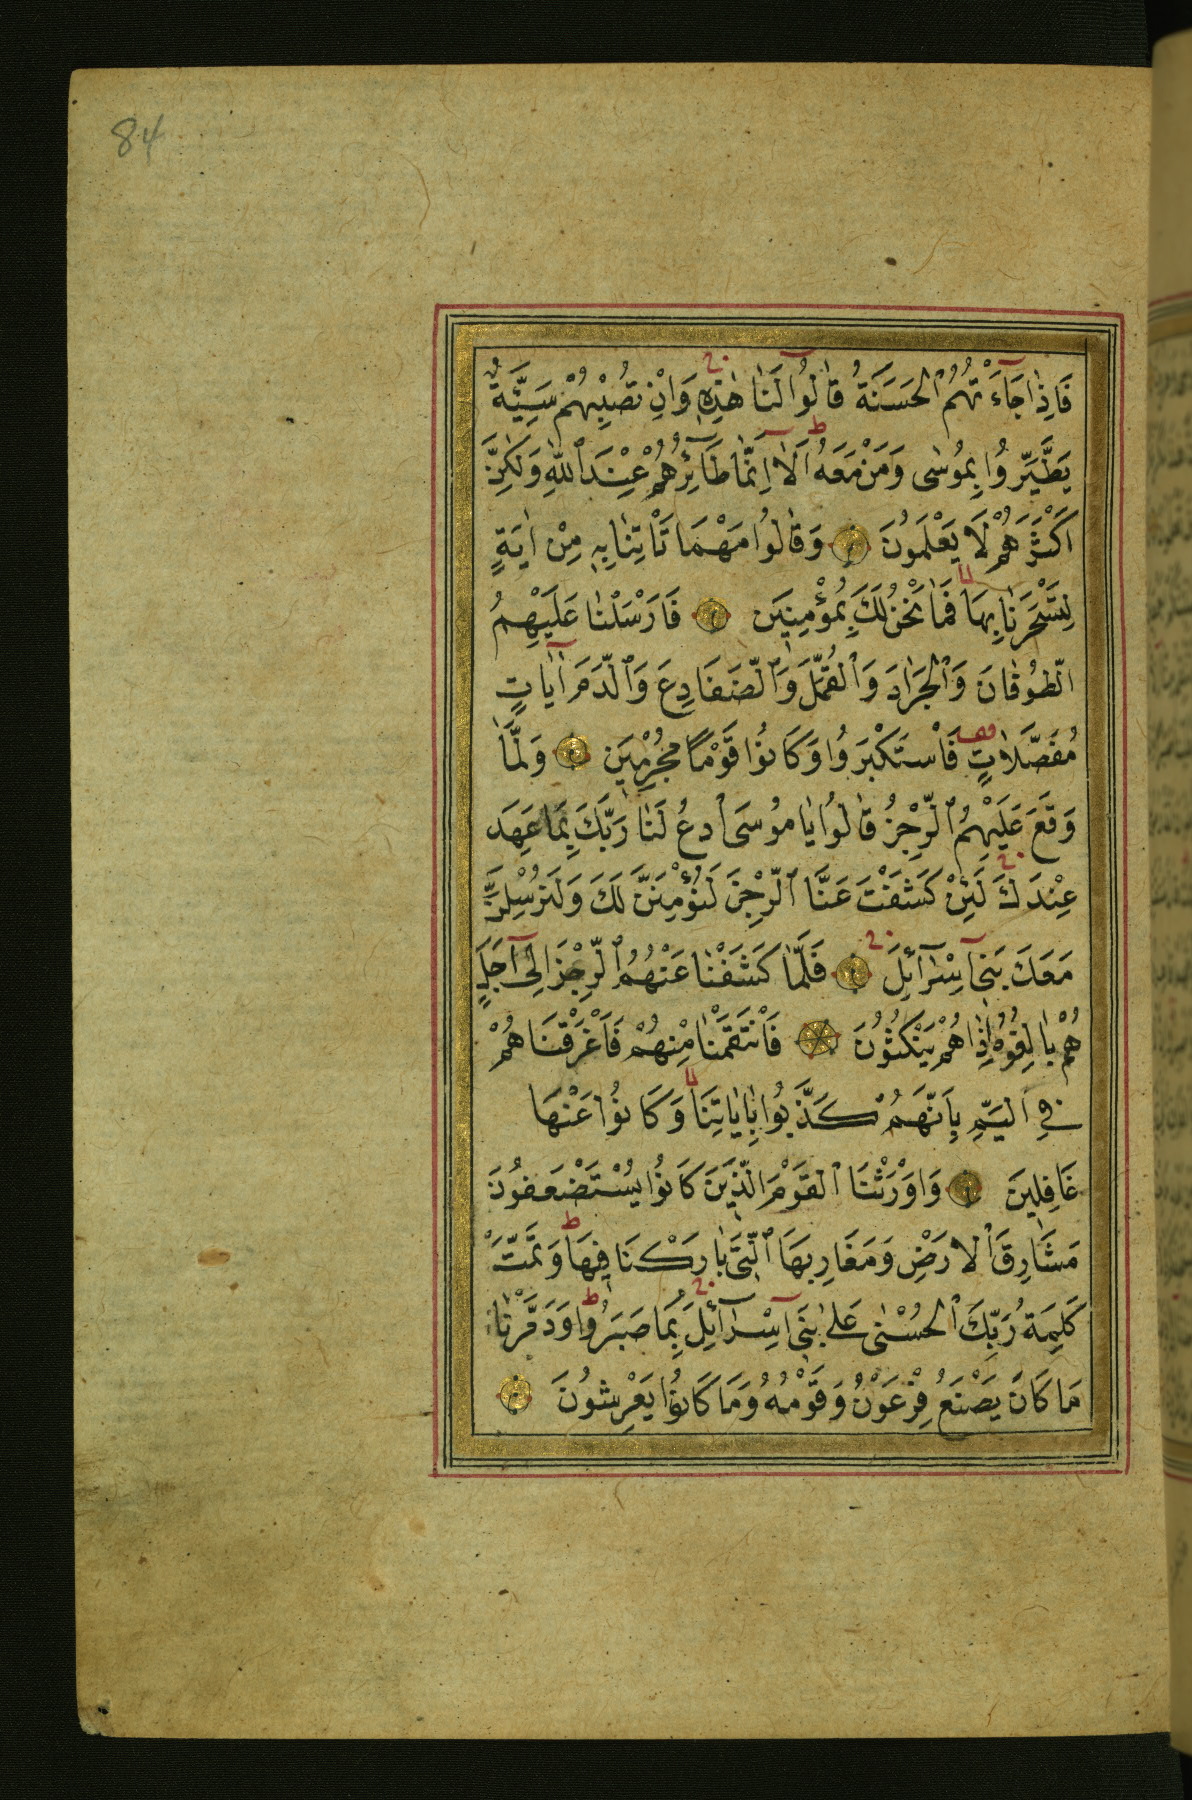 84
فَاِذَا جَآءَتْهُمُ الْحَسَنَةُ قَالُوا لَنَا هٰذِهٖ وَاِنْ تُصِبْهُمْ سَيِّئَةٌ
يَطَّيَّرُوا بِمُوسٰى وَمَنْ مَعَهُ اَلَا اِنَّمَا طَآئِرُهُمْ عِنْدَ اللّٰهِ وَلٰكِنَّ
اَكْثَرَهُمْ لَا يَعْلَمُونَ وَقَالُوا مَهْمَا تَاْتِنَا بِهٖ مِنْ اٰيَةٍ
لِتَسْحَرَنَا بِهَا فَمَا نَحْنُ لَكَ بِمُؤْمِنِينَ فَاَرْسَلْنَا عَلَيْهِمُ
الطُّوفَانَ وَالْجَرَادَ وَالْقُمَّلَ وَالضَّفَادِعَ وَالدَّمَ اٰيَاتٍ
مُفَصَّلَاتٍ فَاسْتَكْبَرُوا وَكَانُوا قَوْمًا مُجْرِمِينَ وَلَمَّا
وَقَعَ عَلَيْهِمُ الرِّجْزُ قَالُوا يَا مُوسَى ادْعُ لَنَا رَبَّكَ بِمَا عَهِدَ
عِنْدَكَ لَئِنْ كَشَفْتَ عَنَّا الرِّجْزَ لَنُؤْمِنَنَّ لَكَ وَلَنُرْسِلَنَّ
مَعَكَ بَنِى اِسْرَآئِلَ فَلَمَّا كَشَفْنَا عَنْهُمُ الرِّجْزَ اِلٰى اَجَلٍ
هُمْ بَالِغُوهُ اِذَا هُمْ يَنْكُثُونَ فَانْتَقَمْنَا مِنْهُمْ فَاَغْرَقْنَاهُمْ
فِي الْيَمِّ بِاَنَّهُمْ كَذَّبُوا بِاٰيَاتِنَا وَكَانُوا عَنْهَا
غَافِلِينَ وَاَوْرَثْنَا الْقَوْمَ الَّذِينَ كَانُوا يُسْتَضْعَفُونَ
مَشَارِقَ الْاَرْضِ وَمَغَارِبَهَا الَّتِى بَارَكْنَا فِيهَا وَتَمَّتْ
كَلِمَةُ رَبِّكَ الْحُسْنٰى عَلٰى بَنِى اِسْرَآئِلَ بِمَا صَبَرُوا وَدَمَّرْنَا
مَا كَانَ يَصْنَعُ فِرْعَوْنُ وَقَوْمُهُ وَمَا كَانُوا يَعْرِشُونَ